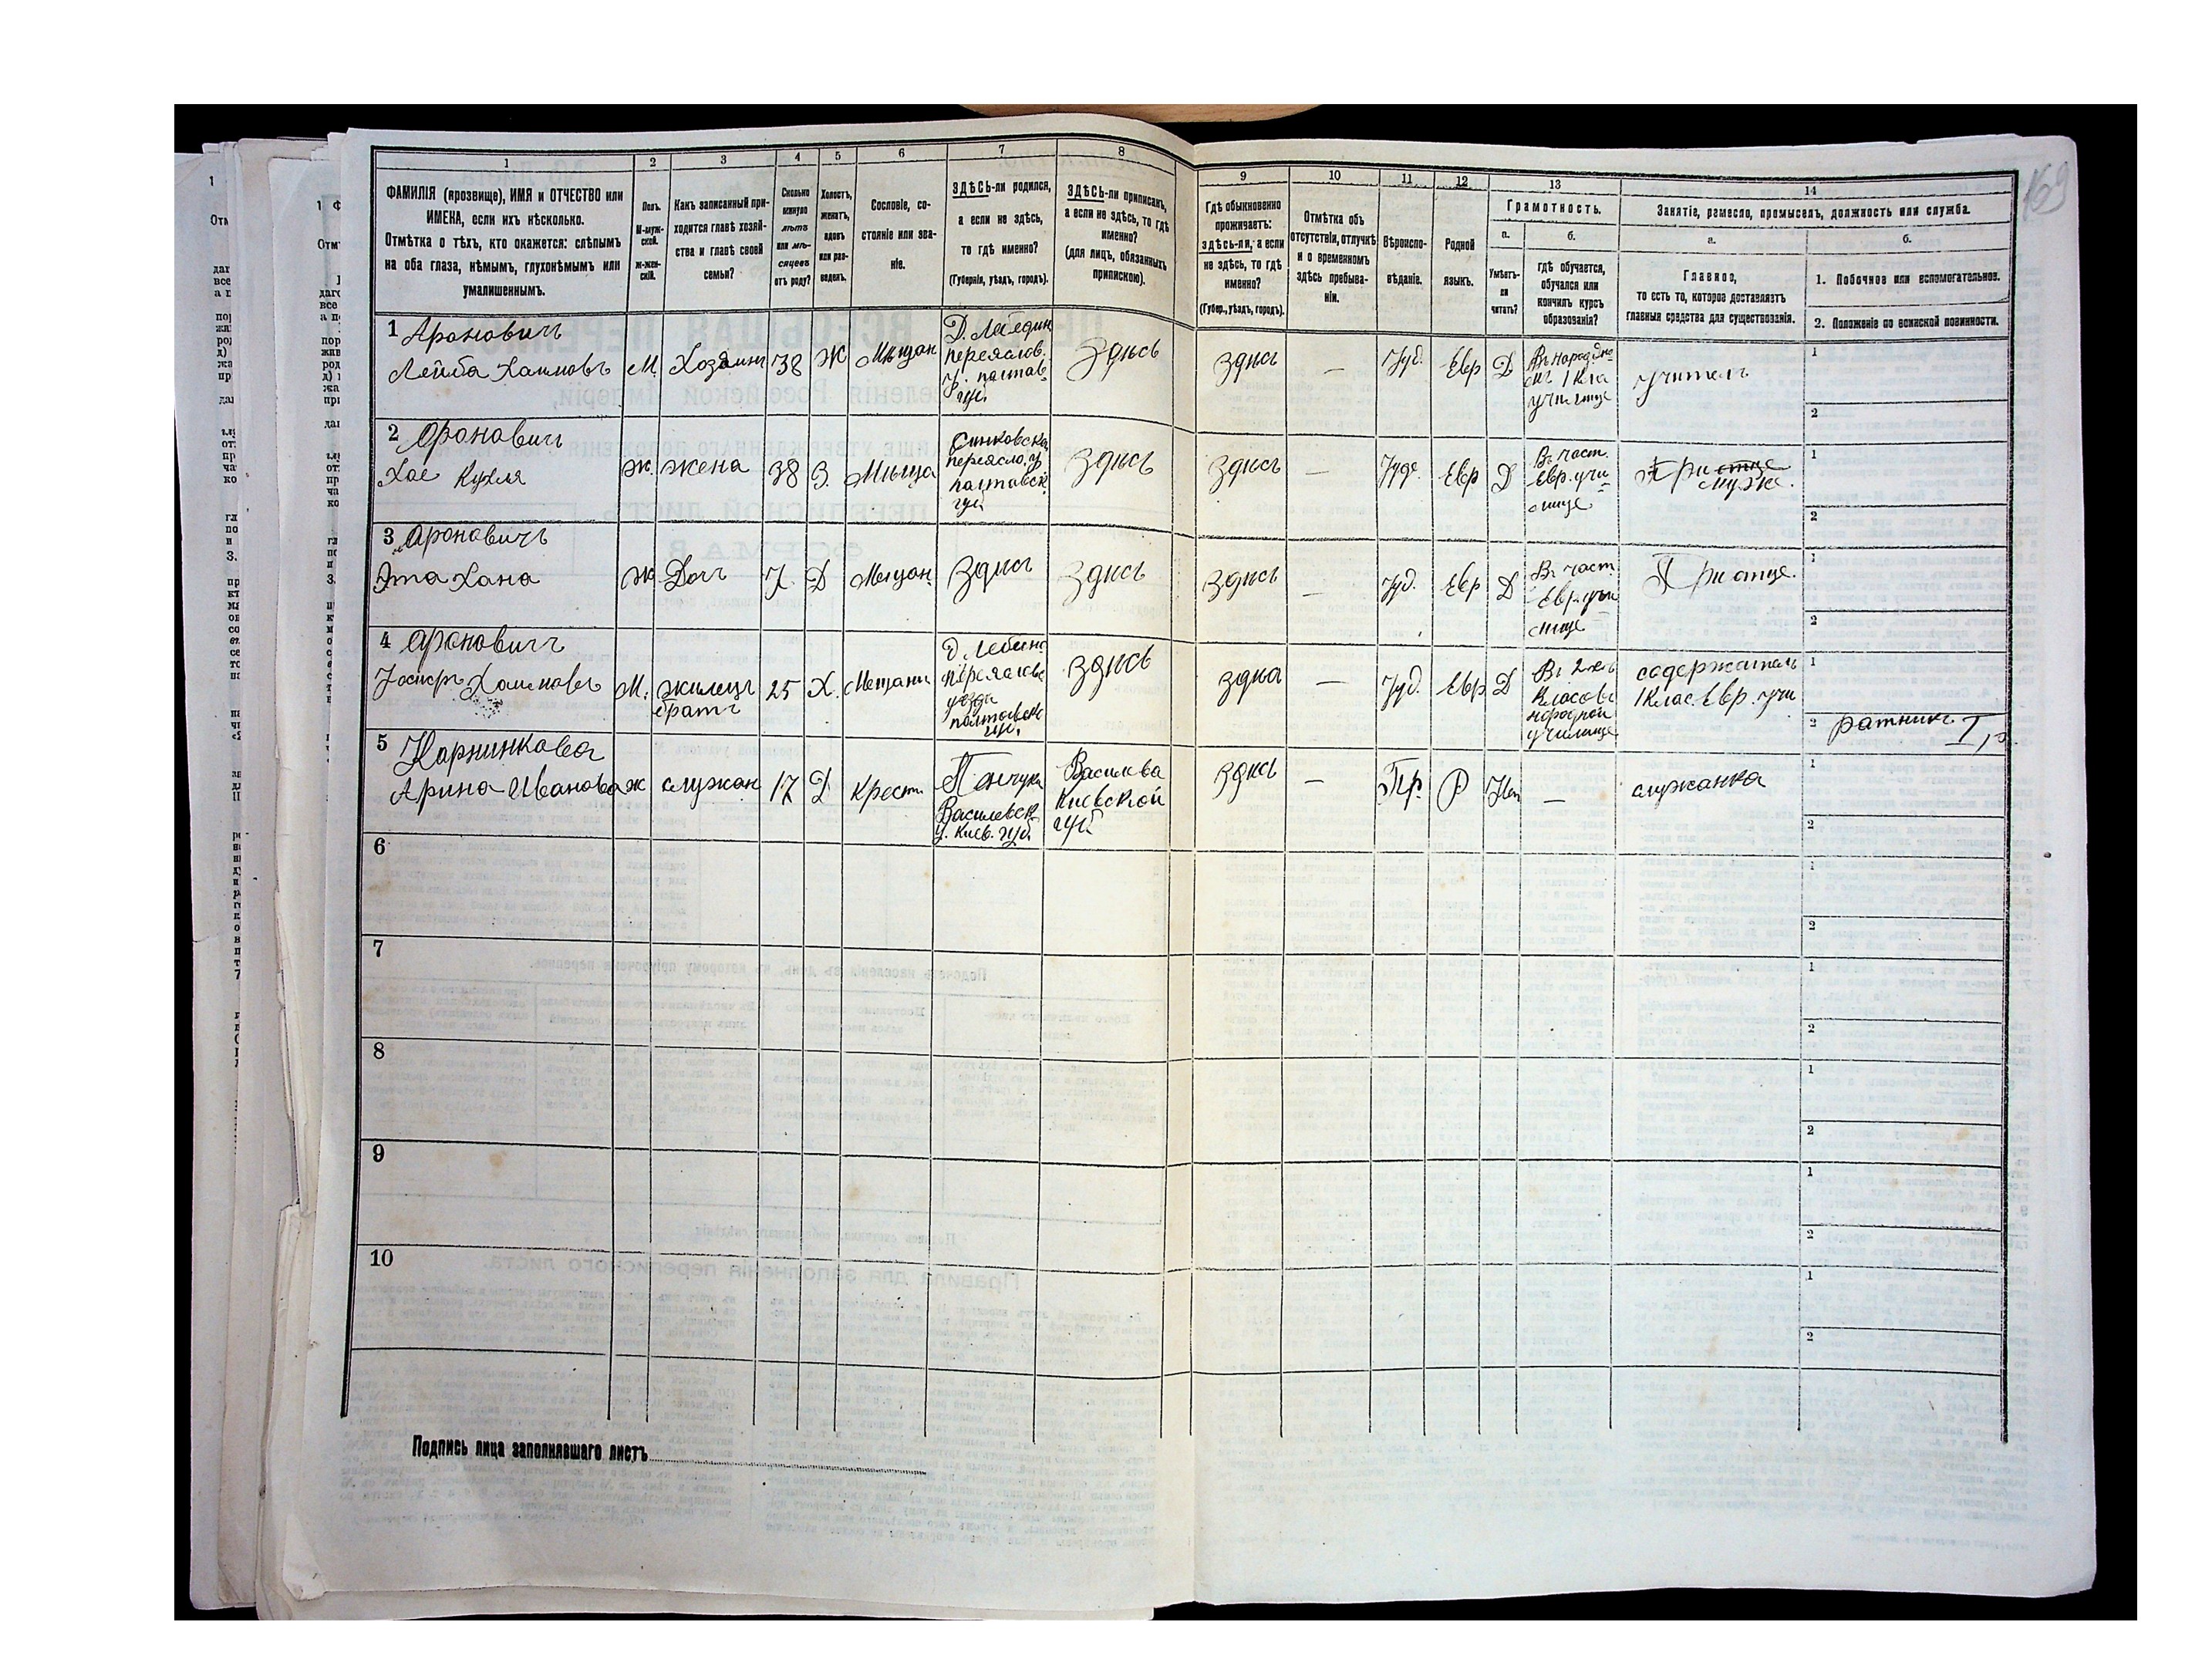 169
1 2 3 4 5 6 7 8 9 10 11 12 13 14
ФАМИЛІЯ (прозвище), ИМЯ и ОТЧЕСТВО или
ИМЕНА, если ихъ нѣсколько.
Отмѣтка о тѣхъ, кто окажется: слѣпымъ
на оба глаза, нѣмымъ, глухонѣмымъ или
умалишеннымъ.
Полъ.
М-муж-
ской.
ж-жен-
скій.
Какъ записанный при-
ходится главѣ хозяй-
ства и главѣ своей
семьи?
Сколько
минуло
лѣтъ
или мѣ-
сяцевъ
отъ роду?
Холостъ,
женатъ,
вдовъ
или раз-
веденъ.
Сословіе, со-
стояніе или зва-
ніе.
ЗДѢСЬ-ли родился,
а если не здѣсь,
то гдѣ именно?
(Губернія, уѣздъ, городъ).
ЗДѢСЬ-ли приписанъ,
а если не здѣсь, то гдѣ
именно?
(для лицъ, обязанныхъ
припискою).
Гдѣ обыкновенно
проживаетъ:
здѣсь-ли, а если
не здѣсь, то гдѣ
именно?
(Губер., уѣздъ, городъ).
Отмѣтка объ
отсутствіи, отлучкѣ
и о временномъ
здѣсь пребыва-
ніи.
Вѣроиспо-
вѣданіе.
Родной
языкъ.
Грамотность.
а.
Умѣетъ-
ли
читать?
б.
гдѣ обучается,
обучался или
кончилъ курсъ
образованія?
Занятіе, ремесло, промыселъ, должность или служба.
а.
Главное,
то есть то, которое доставляетъ
главныя средства для существованія.
б.
1. Побочное или вспомогательное.
2. Положеніе по воинской повинности.
1 Ароновичъ
Лейба Хаимовъ
М
Хозяинъ
38
Ж
Мѣщан
Д. Лебедин
переяслов.
у. полтав
губ.
Здѣсь
Здѣсь
—
Іуд.
Евр
Д
учитель
1
2
2 Ароновичъ
Хае Кухля
Ж.
жена
38
З.
Мѣща
переясло. у
полтавск.
губ
Здѣсь
Здѣсь
—
Іуде
Евр
Д
Въ част.
Евр. учи
лище
При отце
муже.
1
2
3 Ароновичъ
Эта Хана
Ж
Дочъ
7
Д
Мѣщан
Здѣсь
Здѣсь
Здѣсь
—
Іуд.
Евр
Д
Въ част
Евр. учи
лище
При отце.
1
2
4 Ароновичъ
Хаимовъ
М.
жилецъ
братъ
25
Х.
Мещани
полтавск
губ.
здѣсь
здѣсь
—
Іуд.
Евр
Д
Въ 2хъ
Класовъ
народной
училище
содержатель
1 Клас. Евр. учи
1
2 ратникъ I р.
5
Арина Иванова
ж
служан
17
Д
крест.
Василевск
у. Киев. губ
Василева
Киевской
губ
здѣсь
—
Пр.
Р
Нет
—
служанка
1
2
6
1
2
7
1
2
8
1
2
9
1
2
10
1
2
Подпись лица заполнявшаго листъ